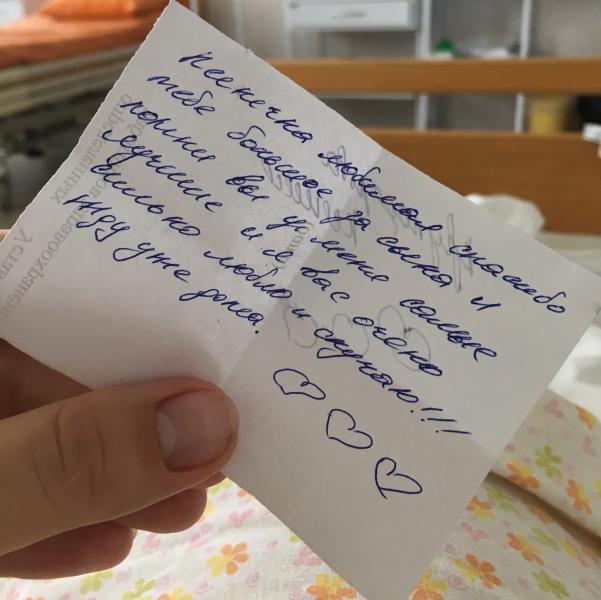 Ксенечка любимая спасибо
тебе большое за сынка и
помни вы у меня самые
лучшие и я вас очень
сильно люблю и скучаю!!!
жду уже дома.
определенных